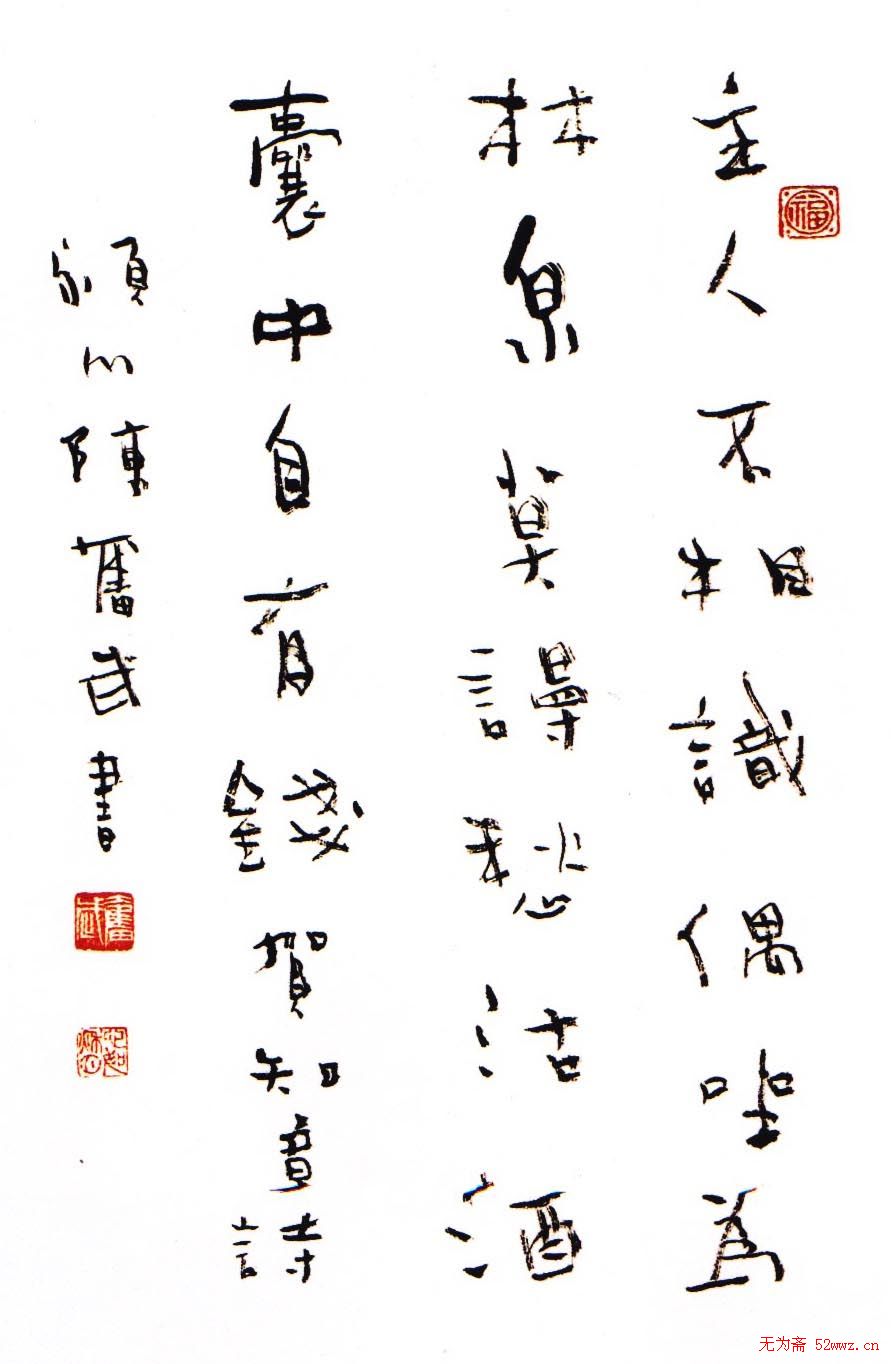 主人不相識偶坐為
林泉莫謾愁沽酒
囊中自有錢賀知章詩
潁川陳奮武書
福
奮武
无为斋 52wwz.cn